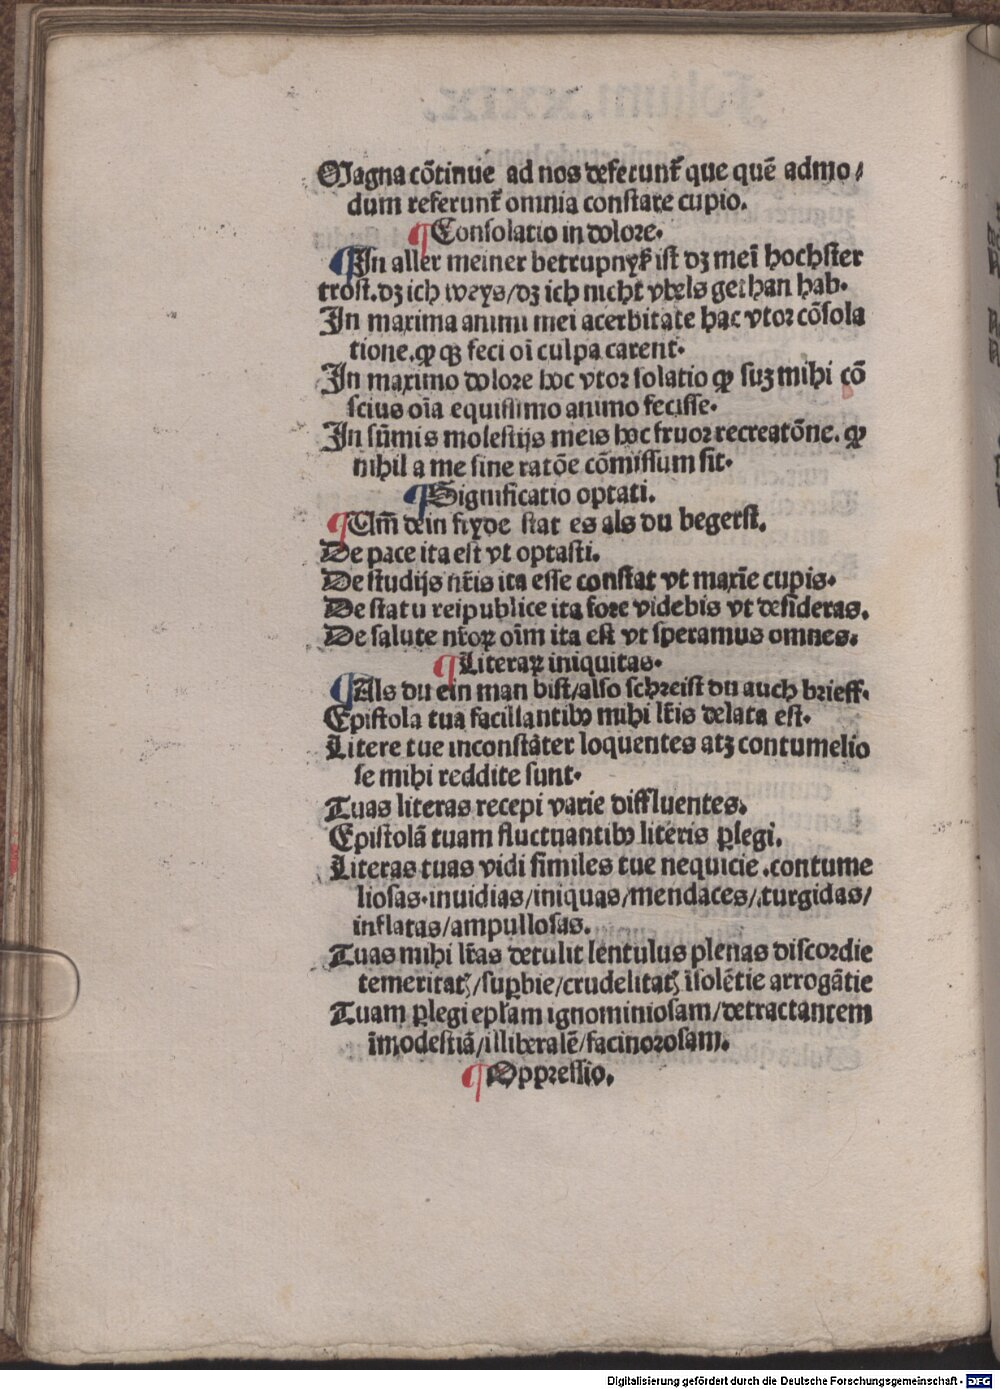 Magna cōtinue ad nos deferunt᷑ que quē admo/
dum referunt᷑ omnia constare cupio.
¶ Consolatio in dolore.
¶ In aller meiner betrupnyß ist dz mei᷑ hochster
trost.dz ich weys/dz ich nicht vbels gethan hab.
In maxima animi mei acerbitate hac vtor cōsola
tione.qꝛ qȝ feci oi᷑ culpa carent.
In maximo dolore hoc vtor solatio qꝛ suȝ mihi cō
scius oīa equissimo animo fecisse.
In sūmis molestijs meis hoc fruor recreatōne. qꝛ
nihil a me sine ratōe cōmissum sit.
¶ Significatio optati.
¶ Um̄ dein fryde stat es als du begerst.
De pace ita est vt optasti.
De studijs nr̄is ita esse constat vt maxīe cupis.
De statu reipublice ita fore videbis vt desideras.
De salute nr̄oꝝ oīm ita est vt speramus omnes.
¶ Literaꝝ iniquitas.
¶ Als du ein man bist/also schreist du auch brieff.
Epistola tua facillantibꝰ mihi lr̄is delata est.
Litere tue inconstāter loquentes atȝ contumelio
se mihi reddite sunt.
Tuas literas recepi varie diffluentes.
Epistolā tuam fluctuantibꝰ literis ꝑlegi.
Literas tuas vidi similes tue nequicie .contume
liosas.inuidias/iniquas/mendaces/.turgidas/
inflatas/ampullosas.
Tuas mihi lr̄as detulit lentulus plenas discordie
temeritatꝭ/suꝑbie/crudelitatꝭ īsolētie arrogātie
Tuam ꝑlegi epl̄am ignominiosam/detractantem
īmodestiā/illiberalē/facinorosam.
¶ Oppressio.
Digitalisierung gefördert durch die Deutsche Forschungsgemeinschaft - DFG